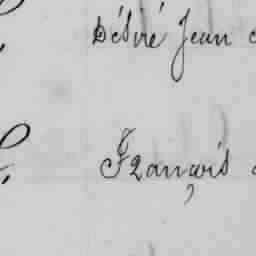 Désiré Jean
François